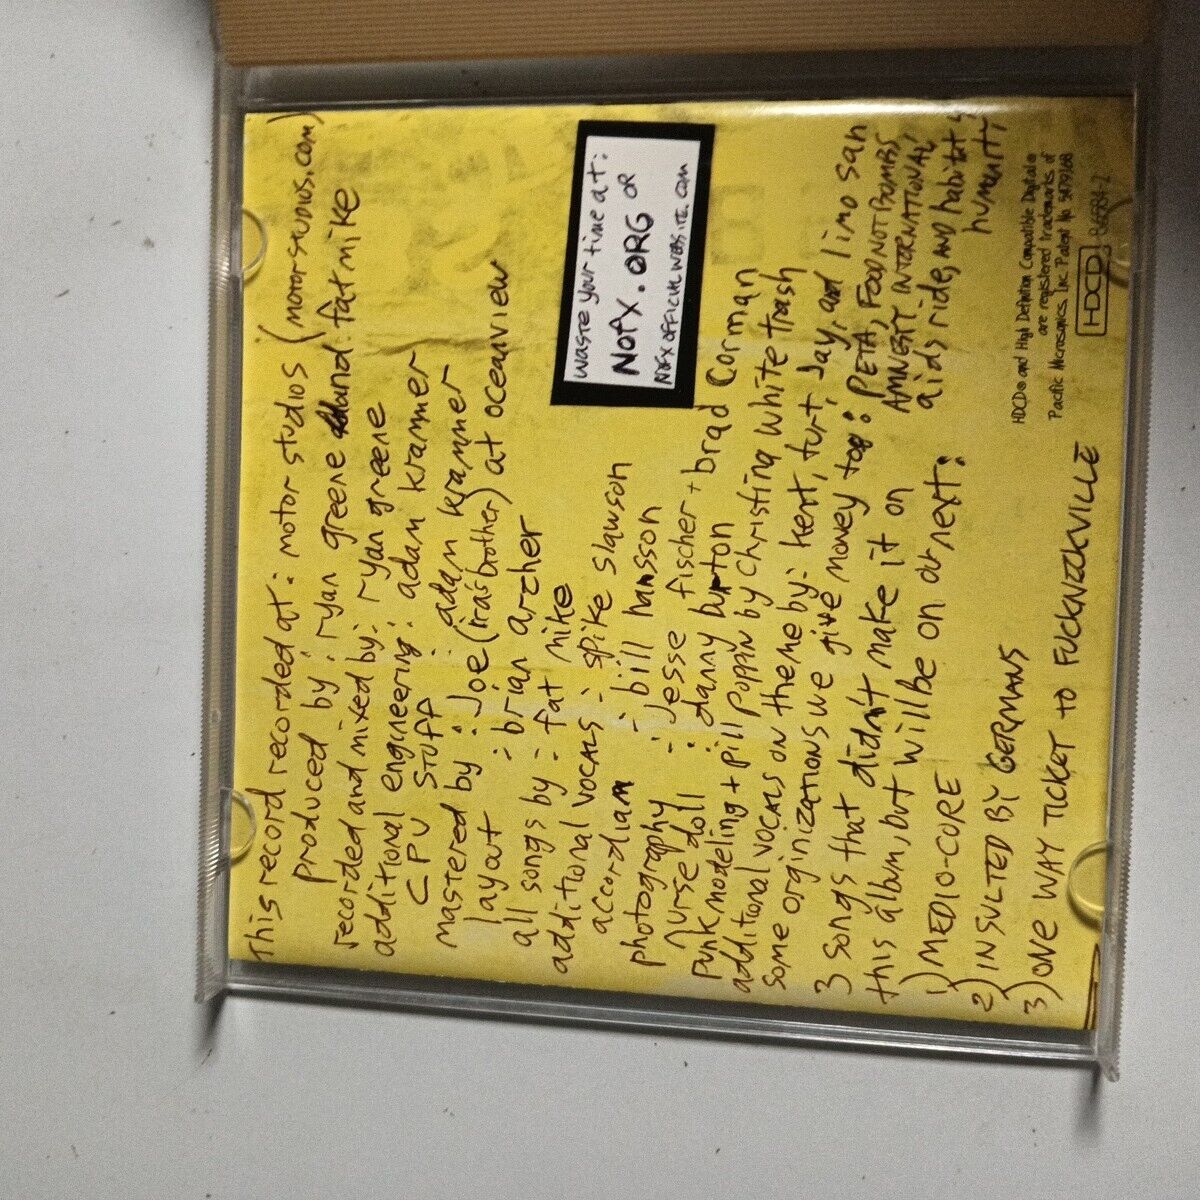 This record recorded at: motor studios (motorstudios.com)
produced by: ryan greene and fat mike
recorded and mixed by: ryan greene
additional engineering: adam krammer
CPU STUFF : adam krammer
mastered by: Joe (ira's brother) at oceanview
layout : brian archer
all songs by: fat mike
additional VOCALS: spike slawson
accordian : bill hansson
photography : jesse fischer + brad Corman
nurse doll : danny burton
Punk modeling + pill poppin by christina white trash
additional VOCALS on theme by: kent, turt, Jay, and limo san
some orginizations we give money too: PETA, FOOD NOT BOMBS,
AMNESTY INTERNATIONAL,
aids ride, AND habitat 4
humanity
3 songs that didn't make it on
this album, but will be on our next:
1) MEDIO-CORE
2) INSULTED BY GERMANS
3) ONE WAY TICKET TO FUCKNIZCKVILLE
waste your time at:
NOFX.ORG OR
NOFXOFFICIALWEBSITE.COM
HDCD® and High Definition Compatible Digital®
are registered trademarks of
Pacific Microsonics, Inc. Patent No 5479168
HDCD 86584-2